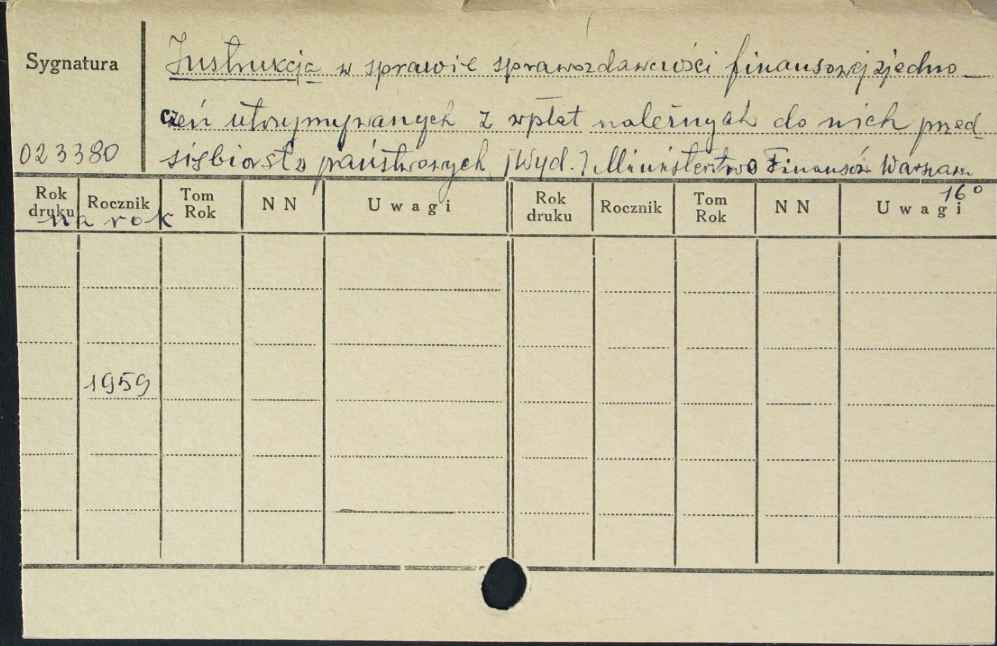 Sygnatura
Instrukcja w sprawie sprawozdawczości finansowej zjedno-
czeń utrzymywanych z wpłat należnych do nich przed
023380
siębiorstw państwowych, [Wyd.] Ministerstwo Finansów Warszawa
16°
Rok druku Rocznik Tom Rok N N Uwagi Rok druku Rocznik Tom Rok N N Uwagi
na rok
1959